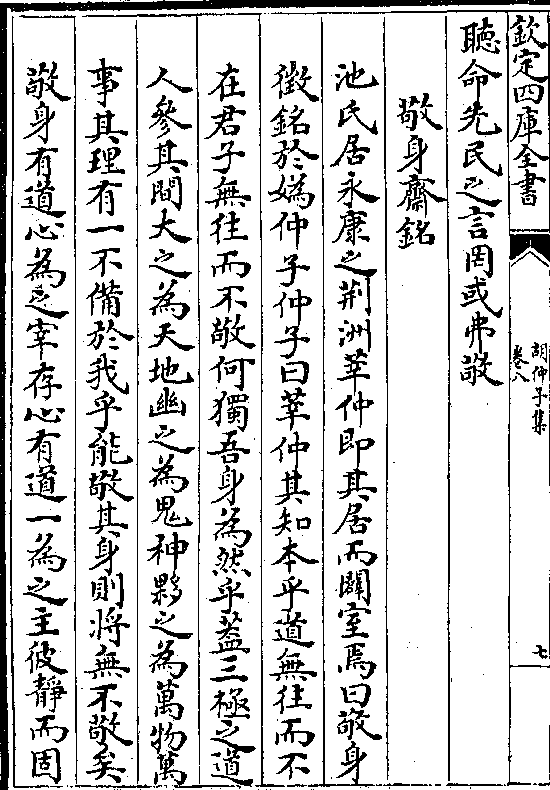 欽定四庫全書
胡仲子集
卷八
七
聽命先民之言罔或弗敬
敬身齋銘
池氏居永康之荆洲莘仲即其居而闢室焉曰敬身
徵銘於嬀仲子仲子曰莘仲其知本乎道無往而不
在君子無往而不敬何獨吾身為然乎葢三極之道
人參其間大之為天地幽之為鬼神夥之為萬物萬
事其理有一不備於我乎能敬其身則將無不敬矣
敬身有道心為之宰存心有道一為之主彼靜而固